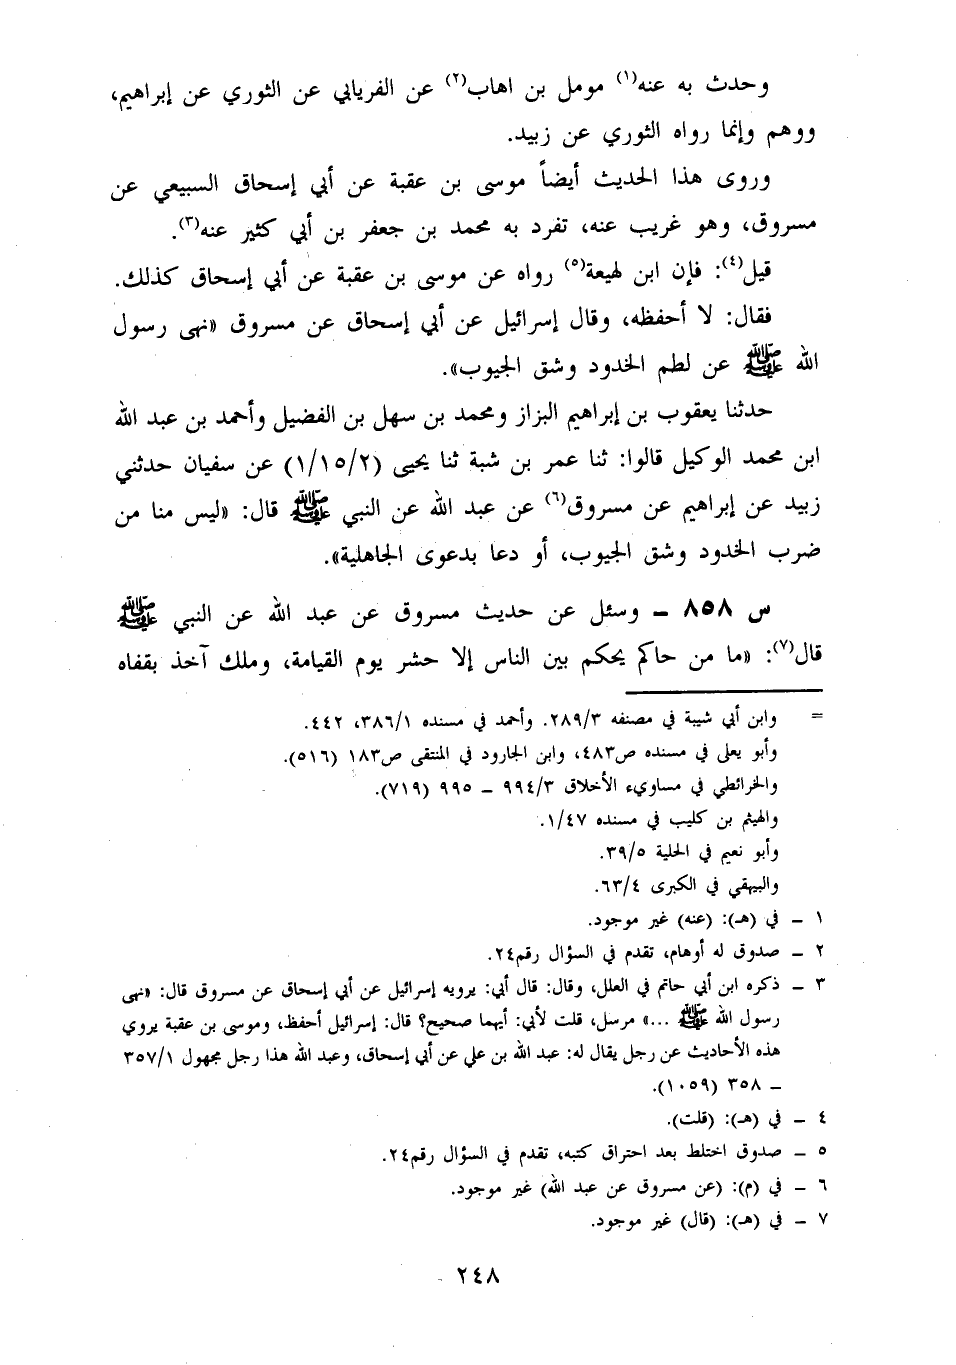 وحدث به عنه(١) مومل بن اهاب(٢) عن الفريابي عن الثوري عن إبراهيم،
ووهم وإنما رواه الثوري عن زبيد.
وروى هذا الحديث أيضاً موسى بن عقبة عن أبي إسحاق السبيعي عن
مسروق، وهو غريب عنه، تفرد به محمد بن جعفر بن أبي كثير عنه(٣).
قيل(٤): فإن ابن لهيعة(٥) رواه عن موسى بن عقبة عن أبي إسحاق كذلك.
فقال: لا أحفظه، وقال إسرائيل عن أبي إسحاق عن مسروق «نهى رسول
الله ﷺ عن لطم الخدود وشق الجيوب».
حدثنا يعقوب بن إبراهيم البزاز ومحمد بن سهل بن الفضيل وأحمد بن عبد الله
ابن محمد الوكيل قالوا: ثنا عمر بن شبة ثنا يحيى (١/١٥/٢) عن سفيان حدثني
زبيد عن إبراهيم عن مسروق(٦) عن عبد الله عن النبي ﷺ قال: «ليس منا من
ضرب الخدود وشق الجيوب، أو دعا بدعوى الجاهلية».
س ٨٥٨ – وسئل عن حديث مسروق عن عبد الله عن النبي ﷺ
قال(٧): «ما من حاكم يحكم بين الناس إلا حشر يوم القيامة، وملك آخذ بقفاه
= وابن أبي شيبة في مصنفه ٢٨٩/٣. وأحمد في مسنده ٣٨٦/١، ٤٤٢.
وأبو يعلى في مسنده ص٤٨٣، وابن الجارود في المنتقى ص١٨٣ (٥١٦).
والخرائطي في مساويء الأخلاق ٩٩٤/٣ – ٩٩٥ (٧١٩).
والهيثم بن كليب في مسنده ١/٤٧.
وأبو نعيم في الحلية ٣٩/٥.
والبيهقي في الكبرى ٦٣/٤.
١ – في (هـ): (عنه) غير موجود.
٢ – صدوق له أوهام، تقدم في السؤال رقم٢٤.
٣ – ذكره ابن أبي حاتم في العلل، وقال: قال أبي: يرويه إسرائيل عن أبي إسحاق عن مسروق قال: «نهى
رسول الله ﷺ ...» مرسل، قلت لأبي: أيهما صحيح؟ قال: إسرائيل أحفظ، وموسى بن عقبة يروي
هذه الأحاديث عن رجل يقال له: عبد الله بن علي عن أبي إسحاق، وعبد الله هذا رجل مجهول ٣٥٧/١
– ٣٥٨ (١٠٥٩).
٤ – في (هـ): (قلت).
٥ – صدوق اختلط بعد احتراق كتبه، تقدم في السؤال رقم٢٤.
٦ – في (م): (عن مسروق عن عبد الله) غير موجود.
٧ – في (هـ): (قال) غير موجود.
٢٤٨